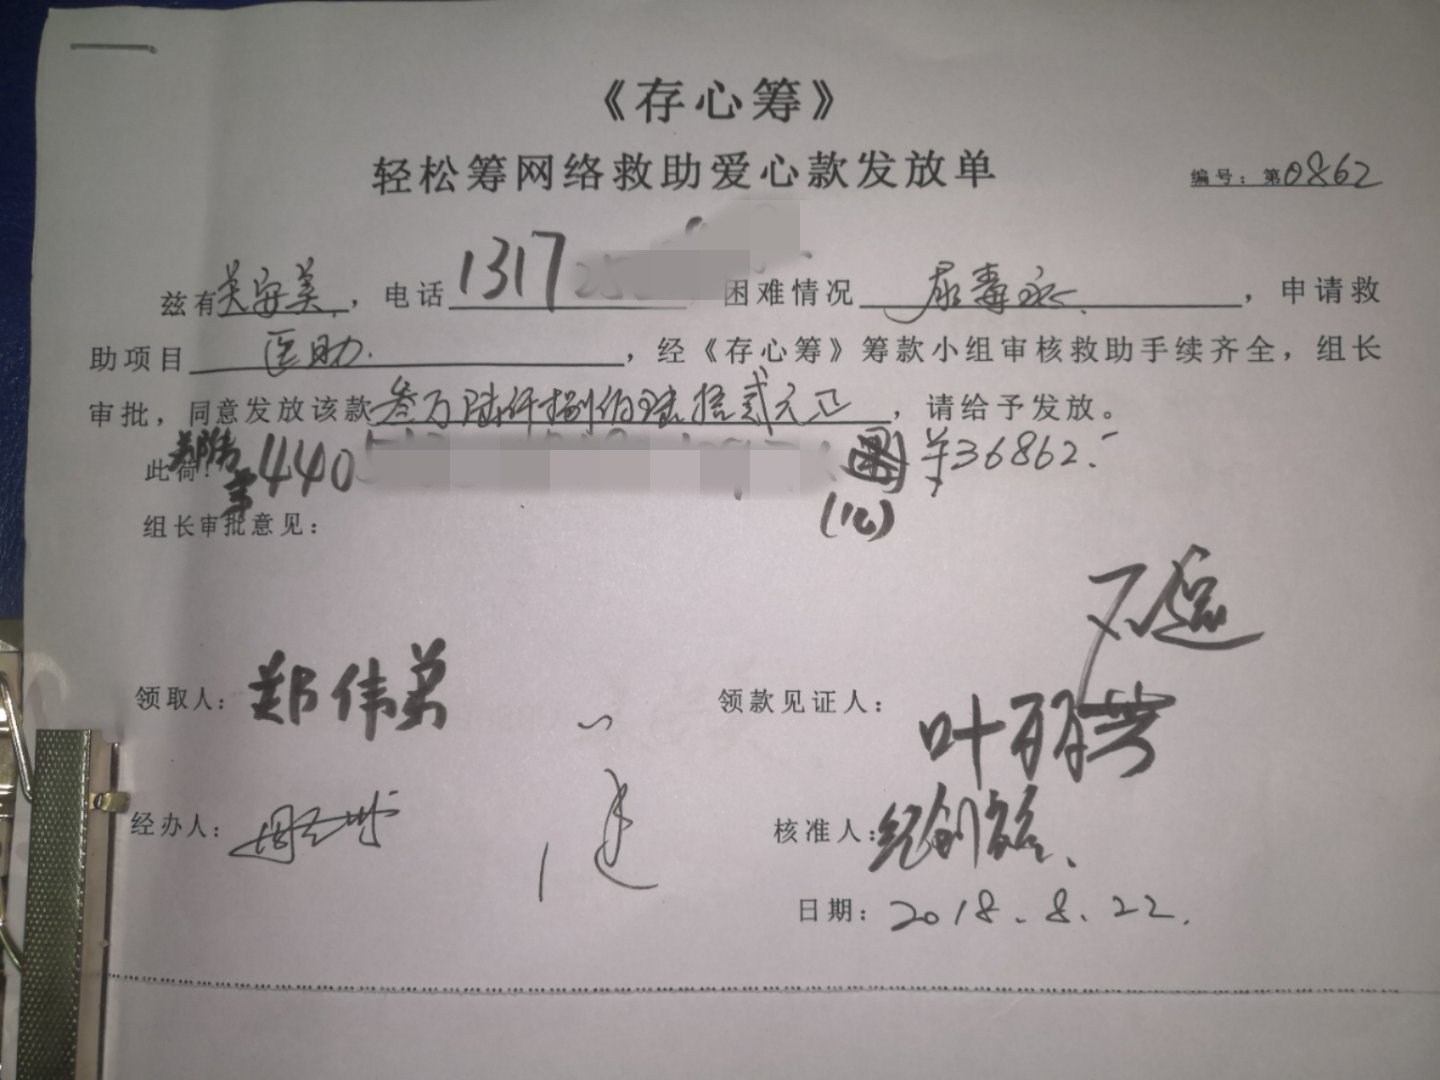 《存心筹》
轻松筹网络救助爱心款发放单
编号：第0862
兹有 安美，电话1317 困难情况 尿毒症，申请救
助项目 医助，经《存心筹》筹款小组审核救助手续齐全，组长
审批，同意发放该款叁万陆仟捌佰陆拾贰元正，请给予发放。
此荷！ 440 ￥36862.-
组长审批意见：
领取人：郑伟弟
领款见证人：叶丽芸
经办人：
核准人：纪创
日期：2018.8.22.